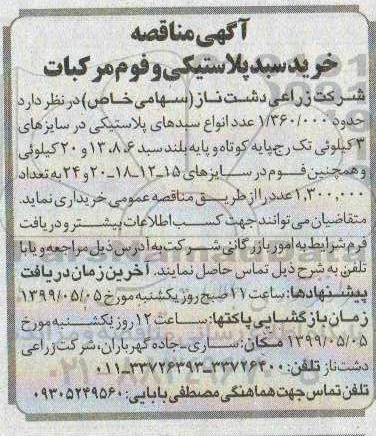 آگهی مناقصه
خرید سبد پلاستیکی و فوم مرکبات
شرکت زراعی دشت ناز (سهامی خاص) در نظر دارد
حدود ۱/۳۶۰/۰۰۰ عدد انواع سبدهای پلاستیکی در سایزهای
۳ کیلوئی تک رج، پایه کوتاه و پایه بلند سبد ۱۳،۸،۶ و ۲۰ کیلوئی
و همچنین فوم در سایزهای ۱۵-۱۲-۱۸-۲۰ و ۲۴ به تعداد
۱,۳۰۰,۰۰۰ عدد را از طریق مناقصه عمومی خریداری نماید.
متقاضیان می توانند جهت کسب اطلاعات بیشتر و دریافت
فرم شرایط به امور بازرگانی شرکت به آدرس ذیل مراجعه و یا با
تلفن به شرح ذیل تماس حاصل نمایند. آخرین زمان دریافت
پیشنهادها: ساعت ۱۱ صبح روز یکشنبه مورخ ۱۳۹۹/۰۵/۰۵
زمان بازگشایی پاکتها: ساعت ۱۲ روز یکشنبه مورخ
۱۳۹۹/۰۵/۰۵ مکان: ساری-جاده گهرباران، شرکت زراعی
دشت ناز تلفن: ۳۳۷۲۶۴۰۰-۳۳۷۲۶۳۹۲-۰۱۱
تلفن تماس جهت هماهنگی مصطفی بابایی: ۰۹۳۰۵۲۴۹۵۶۰